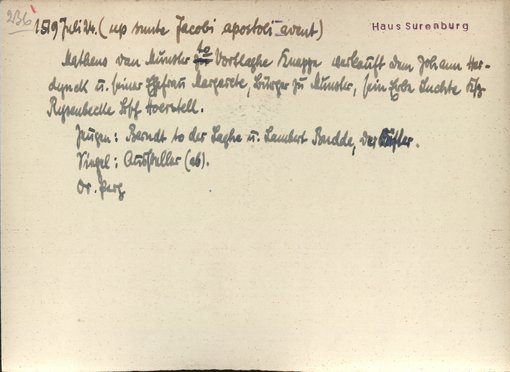 236
1519 Juli 24. (up sunte Jacobi apostoli avent)
Haus Surenburg
Matheus van Munster to Vortlaghe Knappe verkauft dem Johann Her-
dynck u. seiner Ehefrau Margarete, Burger zu Munster, sein Erbe Luchte Ksp.
Rysenbecke Bsch. Hoerstell.
Zeugen: Berndt to der Laghe u. Lambert Budde, der
Siegel: Aussteller (ab).
Or. Perg.